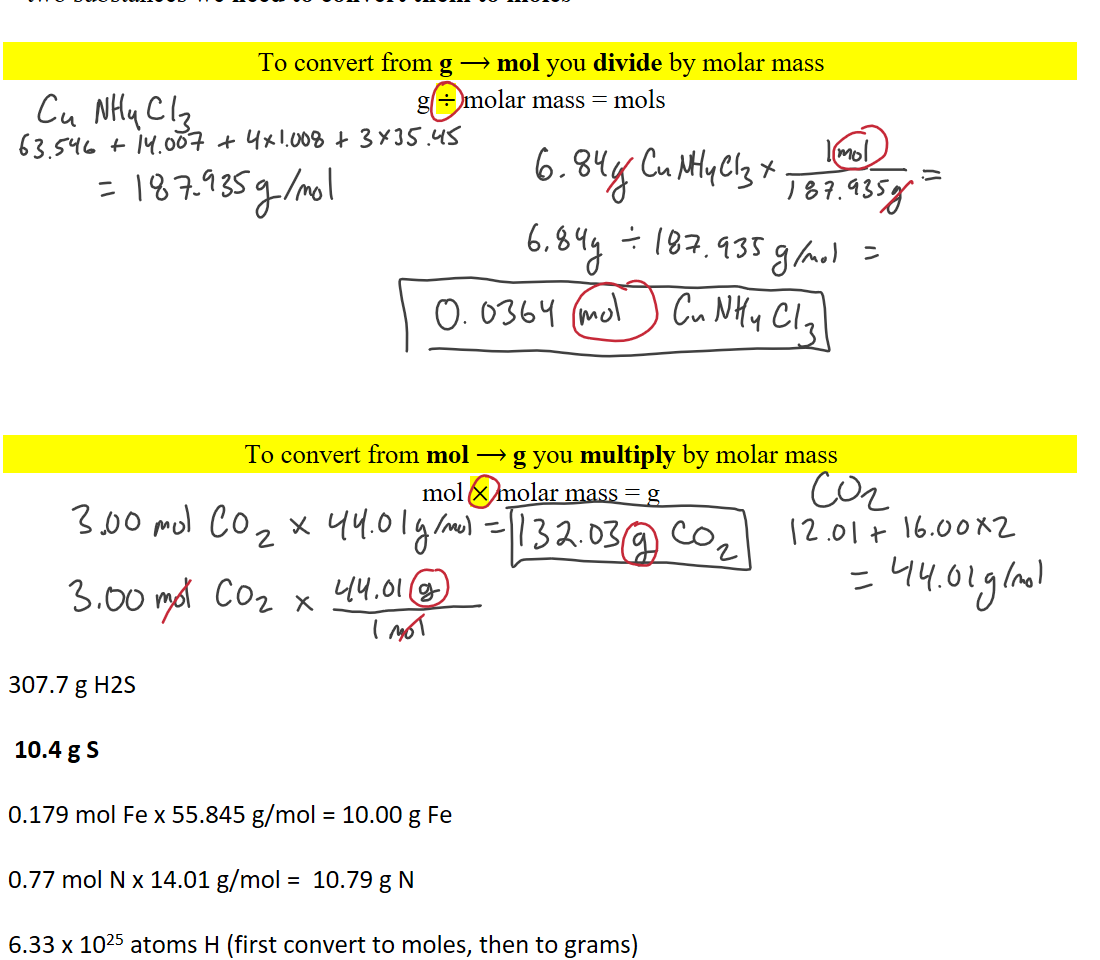 To convert from g → mol you divide by molar mass
g ÷ molar mass = mols
Cu NH₄ Cl₃
63.546 + 14.007 + 4×1.008 + 3×35.45
= 187.935 g/mol
6.84g Cu NH₄Cl₃ × 1 mol / 187.935g =
6.84g ÷ 187.935 g/mol =
0.0364 mol Cu NH₄ Cl₃
To convert from mol → g you multiply by molar mass
mol × molar mass = g
3.00 mol CO₂ × 44.01g/mol = 132.03 g CO₂
3.00 mol CO₂ × 44.01 g / 1 mol
CO₂
12.01 + 16.00×2
= 44.01g/mol
307.7 g H2S
10.4 g S
0.179 mol Fe x 55.845 g/mol = 10.00 g Fe
0.77 mol N x 14.01 g/mol = 10.79 g N
6.33 x 10²⁵ atoms H (first convert to moles, then to grams)